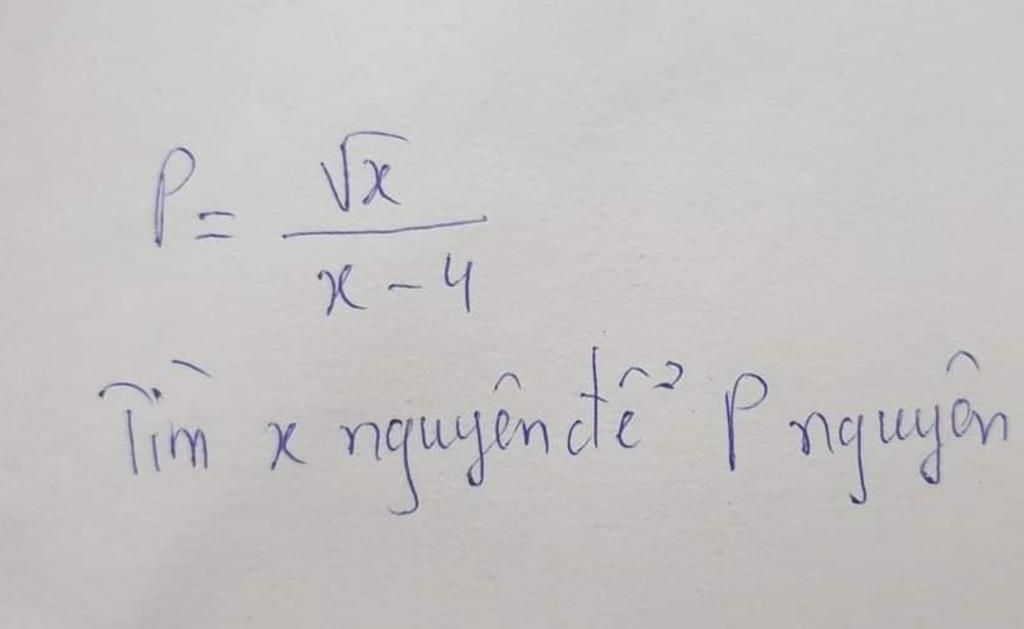 P = \frac{\sqrt{x}}{x - 4}
Tìm x nguyên để P nguyên